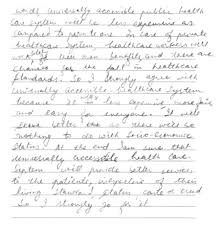 wards. Universally accessible public health
care system will be less expensive as
compared to private one. in case of private
healthcare system, healthcare workers will
of their own benefits and there are
chances for the fall in healthcare
standards. So I strongly agree with
universally accessible healthcare system
because it is less expensive more fair
and easy for everyone. It will
serve better the so there will be
nothing to do with Socio-economic
status. At the end I am sure that
universally accessible health care
system will provide better services
to the patients, irrespective of their
living standard, status caste or creed
So I strongly go for it